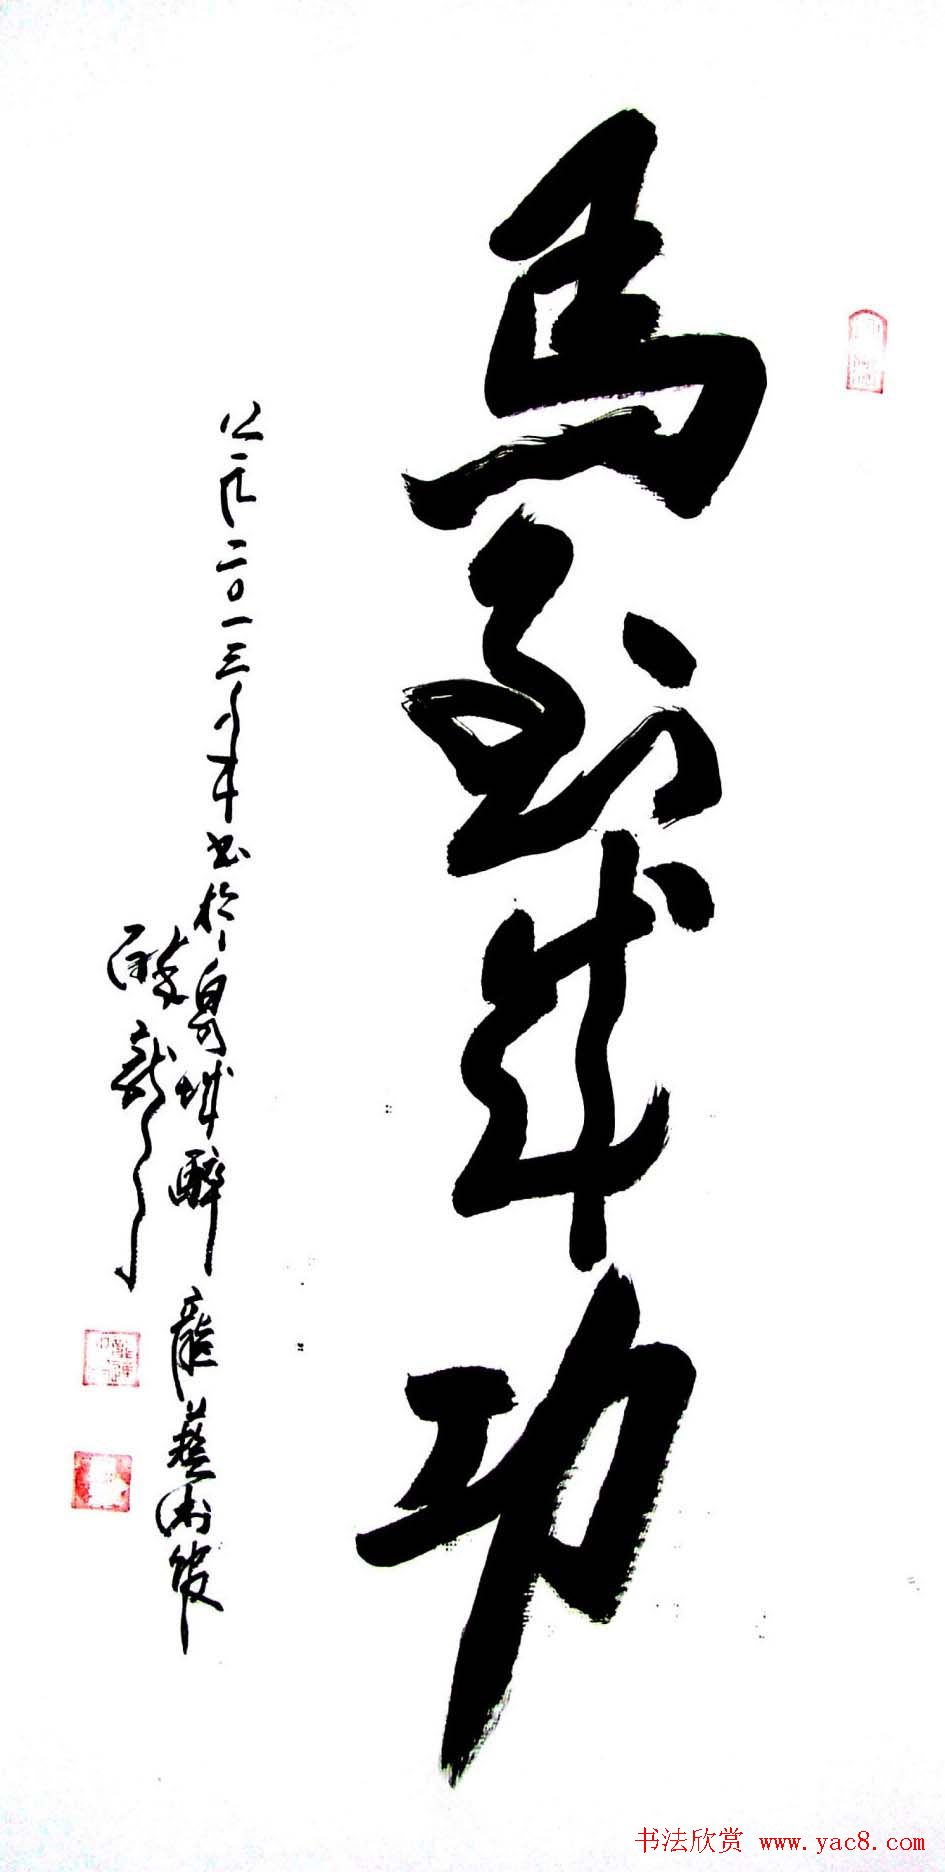 馬到成功
公元二〇一三年書於皇城醉龍藝術館
醉龍
书法欣赏 www.yac8.com